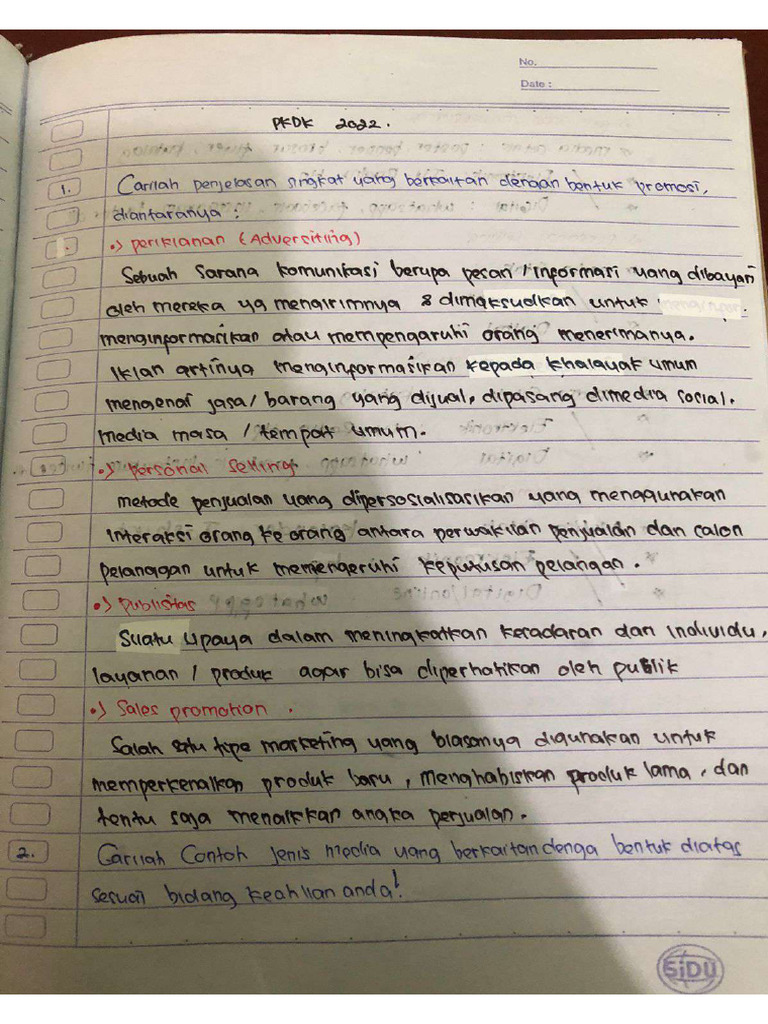 No.
Date :
PKDK 2022.
1. Carilah penjelasan singkat yang berkaitan dengan bentuk promosi,
diantaranya :
1. •> periklanan (Adversiting)
Sebuah Sarana komunikasi berupa pesan / informasi yang dibayari
oleh mereka yg mengirimnya & dimaksudkan untuk
menginformasikan atau mempengaruhi orang menerimanya.
Iklan artinya menginformasikan kepada khalayak umum
mengenai jasa / barang yang dijual, dipasang dimedia social.
media masa / tempat umum.
•> personal selling
metode penjualan yang dipersosialisasikan yang menggunakan
interaksi orang ke orang antara perwakilan penjualan dan calon
pelanggan untuk memengeruhi keputusan pelangan.
•> publisitas
Suatu upaya dalam meningkatkan keradaran dan individu,
layanan / produk agar bisa diperhatikan oleh publik
•> Sales promotion .
Salah satu tipe marketing yang biasanya digunakan untuk
memperkenalkan produk baru, menghabiskan produk lama, dan
tentu saja menaikkan angka perjualan.
2. Carilah Contoh jenis media yang berkaitan denga bentuk diatas
sesuai bidang keahlian anda!
SiDU